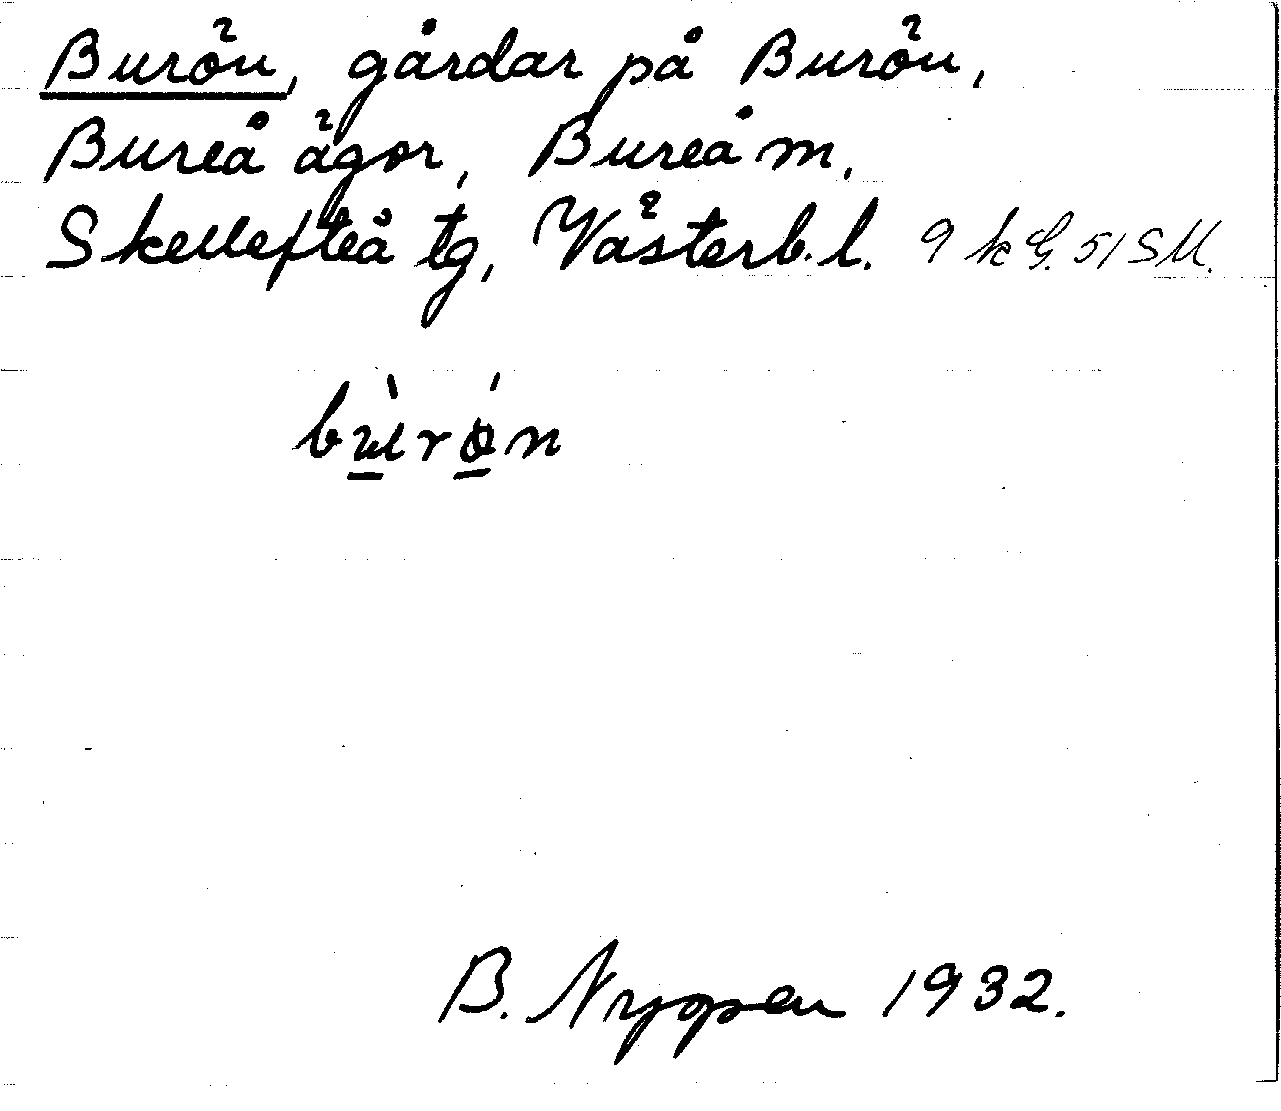 Burön, gårdar på Burön,
Bureå ägor, Bureå m,
Skellefteå tg, Västerb. l. 9 k G. 51 SM.
bùrón
B. 1932.